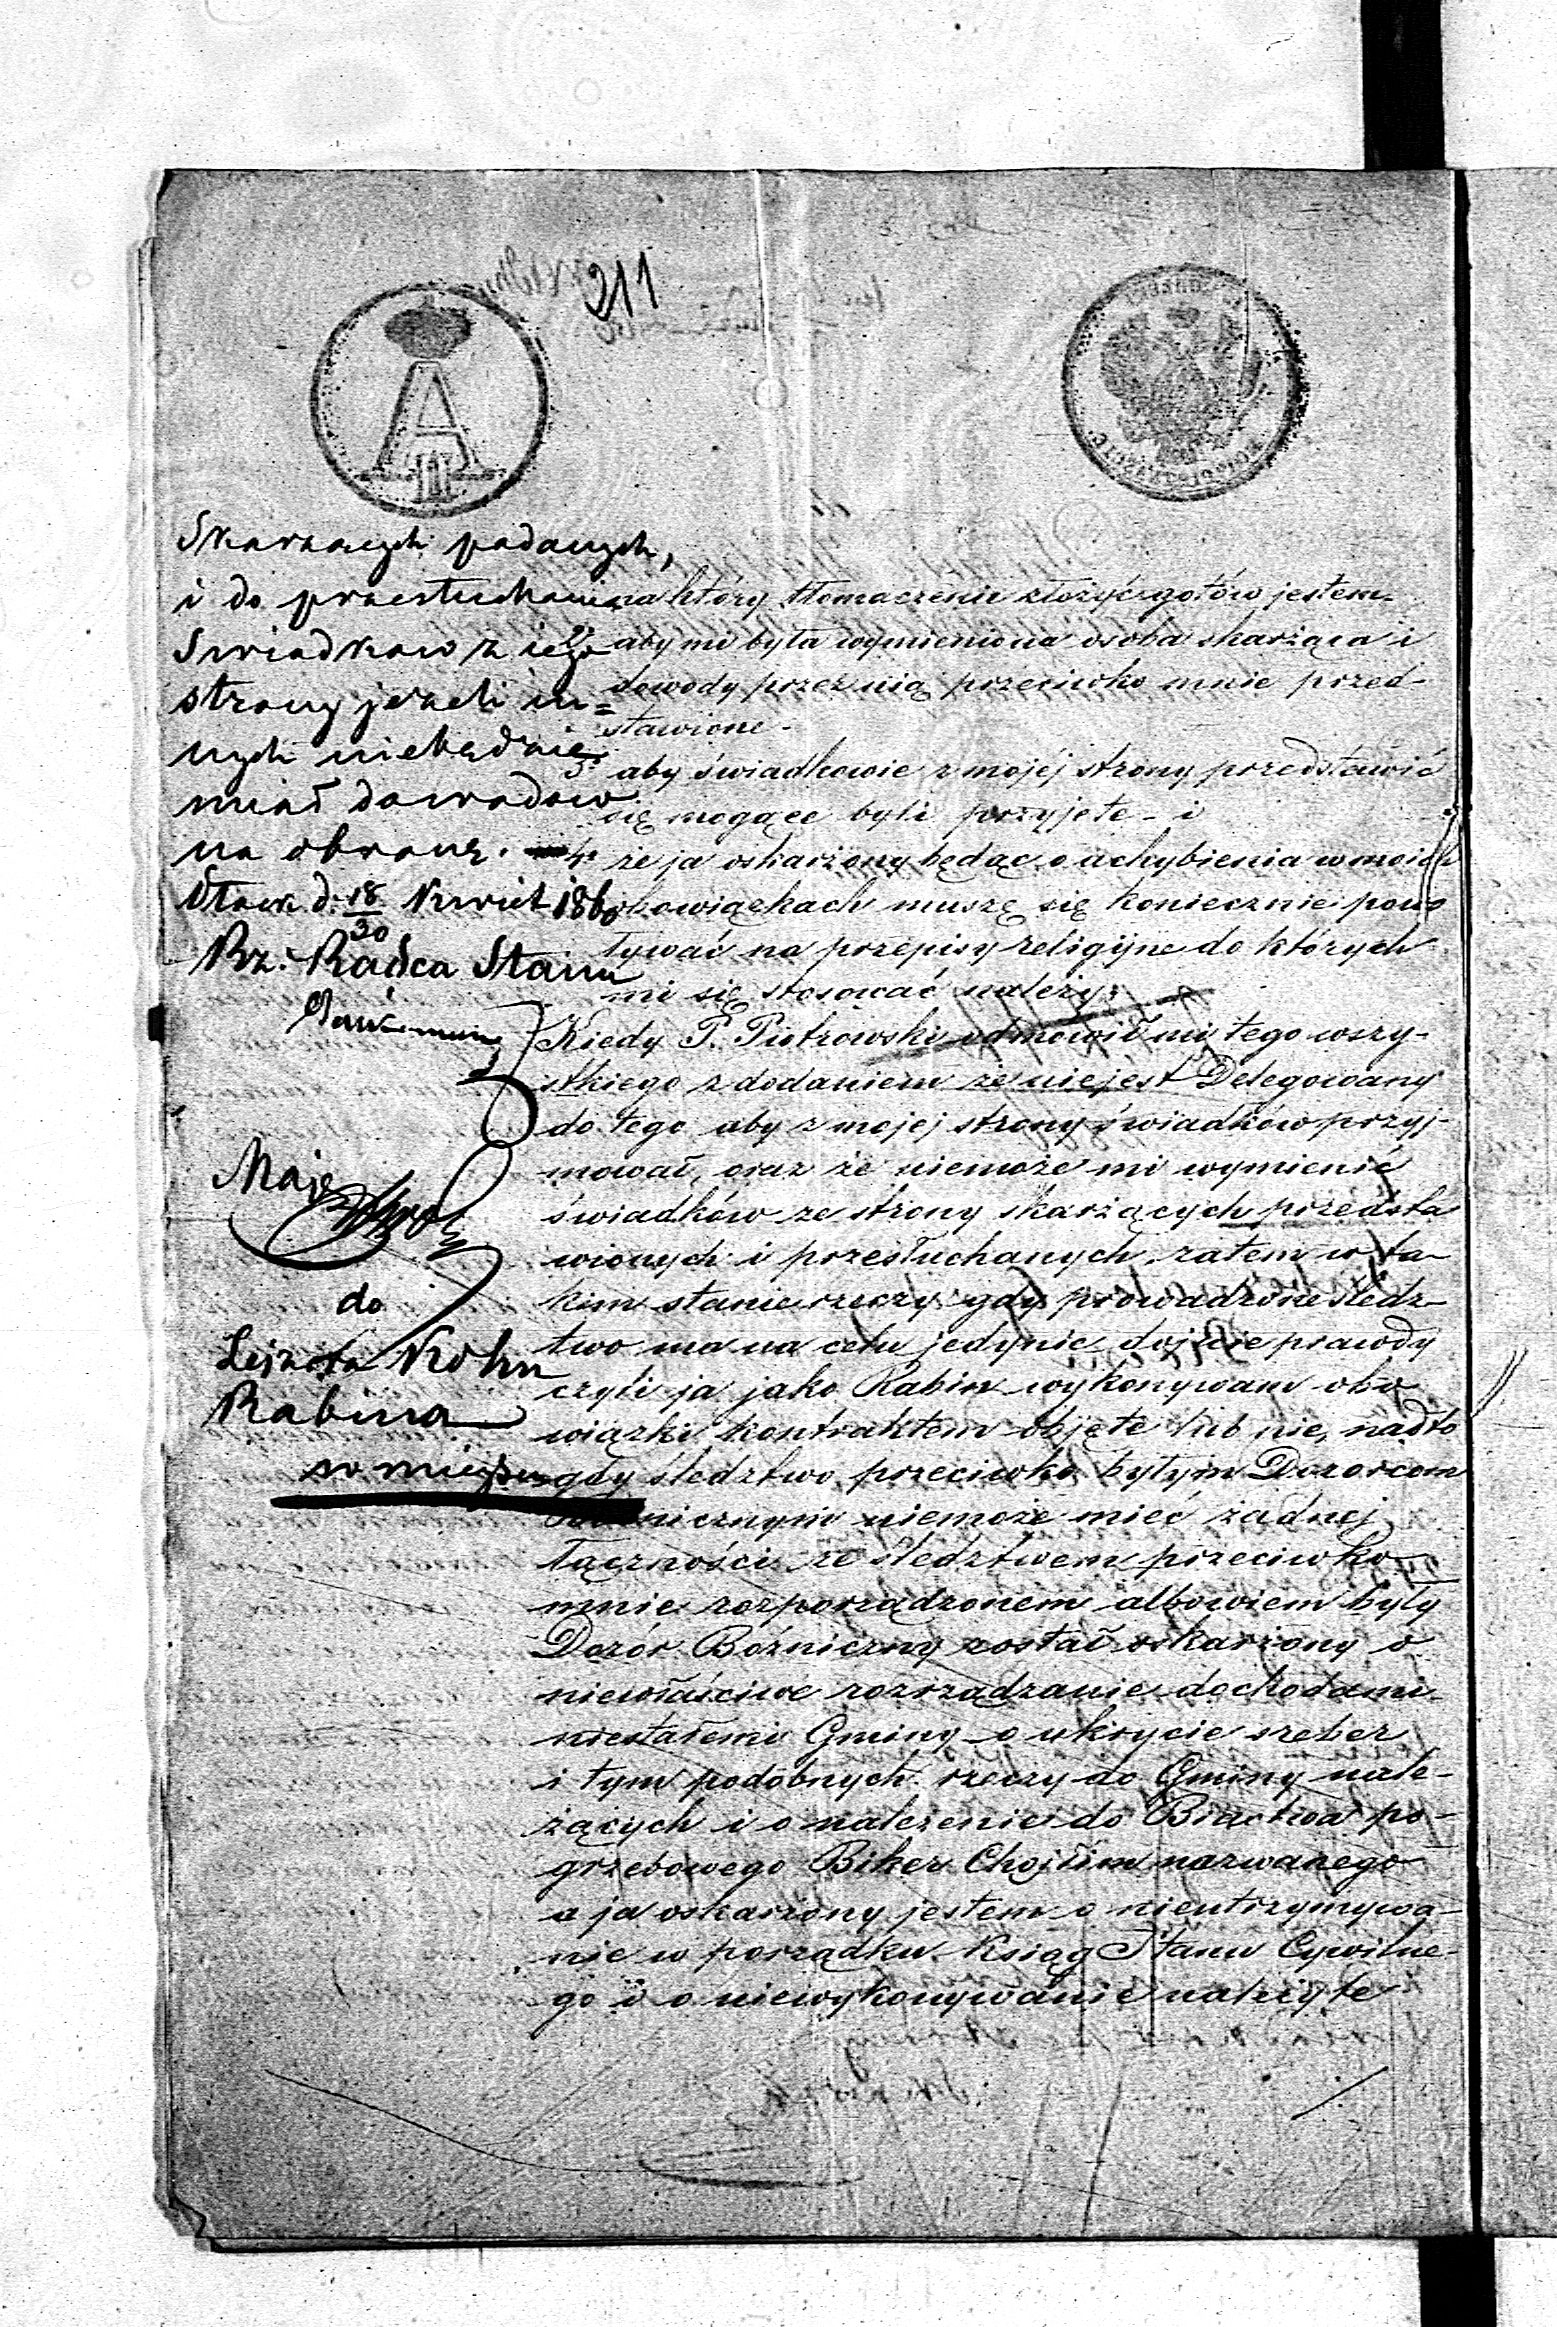 211
A
III
Skarzących podanych,
i do przesłuchania
Swiadkow z iego
strony jeżeli in=
nych niebędzie
miał dowodow
na obronę.
d. 18/30 Kwiet 1860
Rz: Radca Stanu
Maje
do
Lejzera Kohn
Rabina
w miejscu
na który tłomaczenie złożyć gotów jestem.
2° aby mi była wymieniona osoba skarżąca i
dowody przez nią przeciwko mnie przed-
stawione -
3° aby świadkowie z mojéj strony przedstawić
się mogące byli przyjęte - i
4° że ja oskarżony będąc o uchybienia w moich
obowiązkach muszę się koniecznie powo
ływać na przepisy religijne do których
mi się stosować należy.
Kiedy P. Piotrowski odmówił mi tego wszy-
stkiego z dodaniem że niejest Delegowany
do tego aby z mojej strony świadków przyj-
mował, oraz że niemoże mi wymienić
świadków ze strony skarżących przedsta
wionych i przesłuchanych, zatem w ta-
kim stanie rzeczy gdy prowadzone śledz-
two ma na celu jedynie dojście prawdy
czyli ja jako Rabin wykonywam obo
wiązki kontraktem objęte lub nie, nadto
gdy śledztwo przeciwko byłym Dozorcom
Bóżnicznym niemoże mieć żadnej
łączności ze śledztwem przeciwko
mnie rozporządzonem albowiem były
Dozór Bóżniczny został oskarżony o
niewłaściwe rozrządzanie dochodami
niestałemi Gminy o ukrycie sreber
i tym podobnych rzeczy do Gminy nale-
żących i o należenie do Bractwa po-
grzebowego Biker Chojlim nazwanego
a ja oskarżony jestem o nieutrzymywa-
nie w porządku Ksiąg Stanu Cywilne-
go i o niewykonywanie należyte